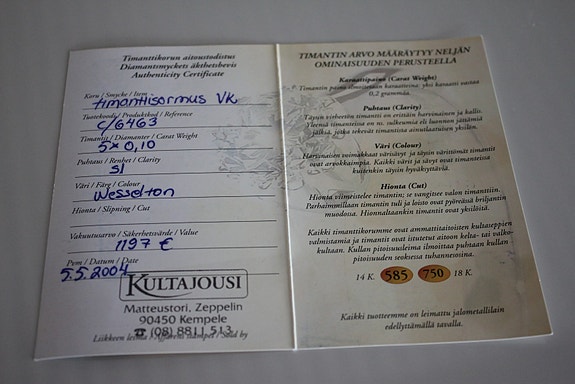 Timanttikorun aitoustodistus
Diamantsmyckets äkthetsbevis
Authenticity Certificate
Koru / Smycke / Item
Timanttisormus VK
Tuotekoodi / Produktkod / Reference
C/6463
Timantit / Diamanter / Carat Weight
5x0,10
Puhtaus / Renhet / Clarity
SI
Väri / Färg / Colour
Wesselton
Hionta / Slipning / Cut
Vakuutusarvo / Säkerhetsvärde / Value
1197 €
Pvm / Datum / Date
5.5.2004
KULTAJOUSI
Matteustori, Zeppelin
90450 Kempele
☎ (08) 8811 513
Liikkeen leima / Affärens stämpel / Sold by
TIMANTIN ARVO MÄÄRÄYTYY NELJÄN
OMINAISUUDEN PERUSTEELLA
Karaattipaino (Carat Weight)
Timantin paino ilmoitetaan karaatteina: yksi karaatti vastaa
0,2 grammaa.
Puhtaus (Clarity)
Täysin virheetön timantti on erittäin harvinainen ja kallis.
Yleensä timanteissa on ns. sulkeumia eli luonnon jättämiä
jälkiä, jotka tekevät timantista ainutlaatuisen yksilön.
Väri (Colour)
Harvinaisen voimakkaat värisävyt ja täysin värittömät timantit
ovat arvokkaimpia. Kaikki värit ja sävyt ovat timanteissa
kuitenkin täysin hyväksyttäviä.
Hionta (Cut)
Hionta viimeistelee timantin; se vangitsee valon timanttiin.
Parhaimmillaan timantin tuli ja loisto ovat pyöreässä briljantin
muodossa. Hionnaltaankin timantit ovat yksilöitä.
Kaikki timanttikorumme ovat ammattitaitoisten kultaseppien
valmistamia ja timantit ovat istutetut aitoon kelta- tai valko-
kultaan. Kullan pitoisuusleima ilmoittaa puhtaan kullan
pitoisuuden seoksessa tuhannesosina.
14 K. 585 750 18 K.
Kaikki tuotteemme on leimattu jalometallilain
edellyttämällä tavalla.